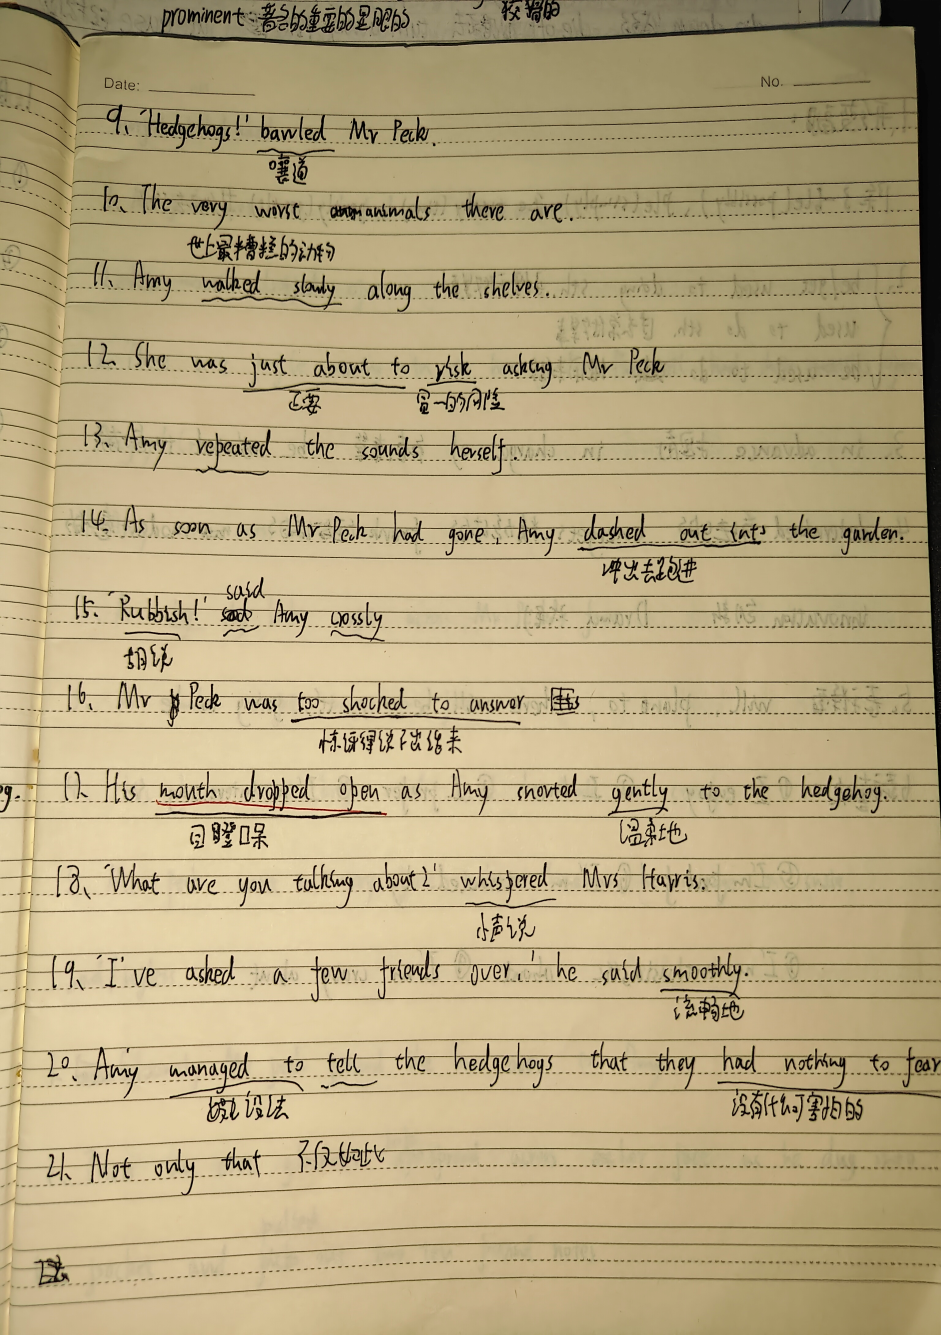 prominent: 著名的重要的显眼的 狡猾的
Date: No.
9、'Hedgehogs!' bawled Mr Peck.
嚷道
10、The very worst animals there are.
世上最糟糕的动物
11、Amy walked slowly along the shelves.
12、She was just about to risk asking Mr Peck
正要 冒…的风险
13、Amy repeated the sounds herself.
14、As soon as Mr Peck had gone, Amy dashed out into the garden.
冲出去跑进
said
15、'Rubbish!' Amy crossly
胡说
16、Mr Peck was too shocked to answer
惊讶得说不出话来
17、His mouth dropped open as Amy snorted gently to the hedgehog.
目瞪口呆 温柔地
18、'What are you talking about?' whispered Mrs Harris.
小声说
19、'I've asked a few friends over,' he said smoothly.
流畅地
20、Amy managed to tell the hedgehogs that they had nothing to fear
设法 没有什么可害怕的
21、Not only that 不仅如此